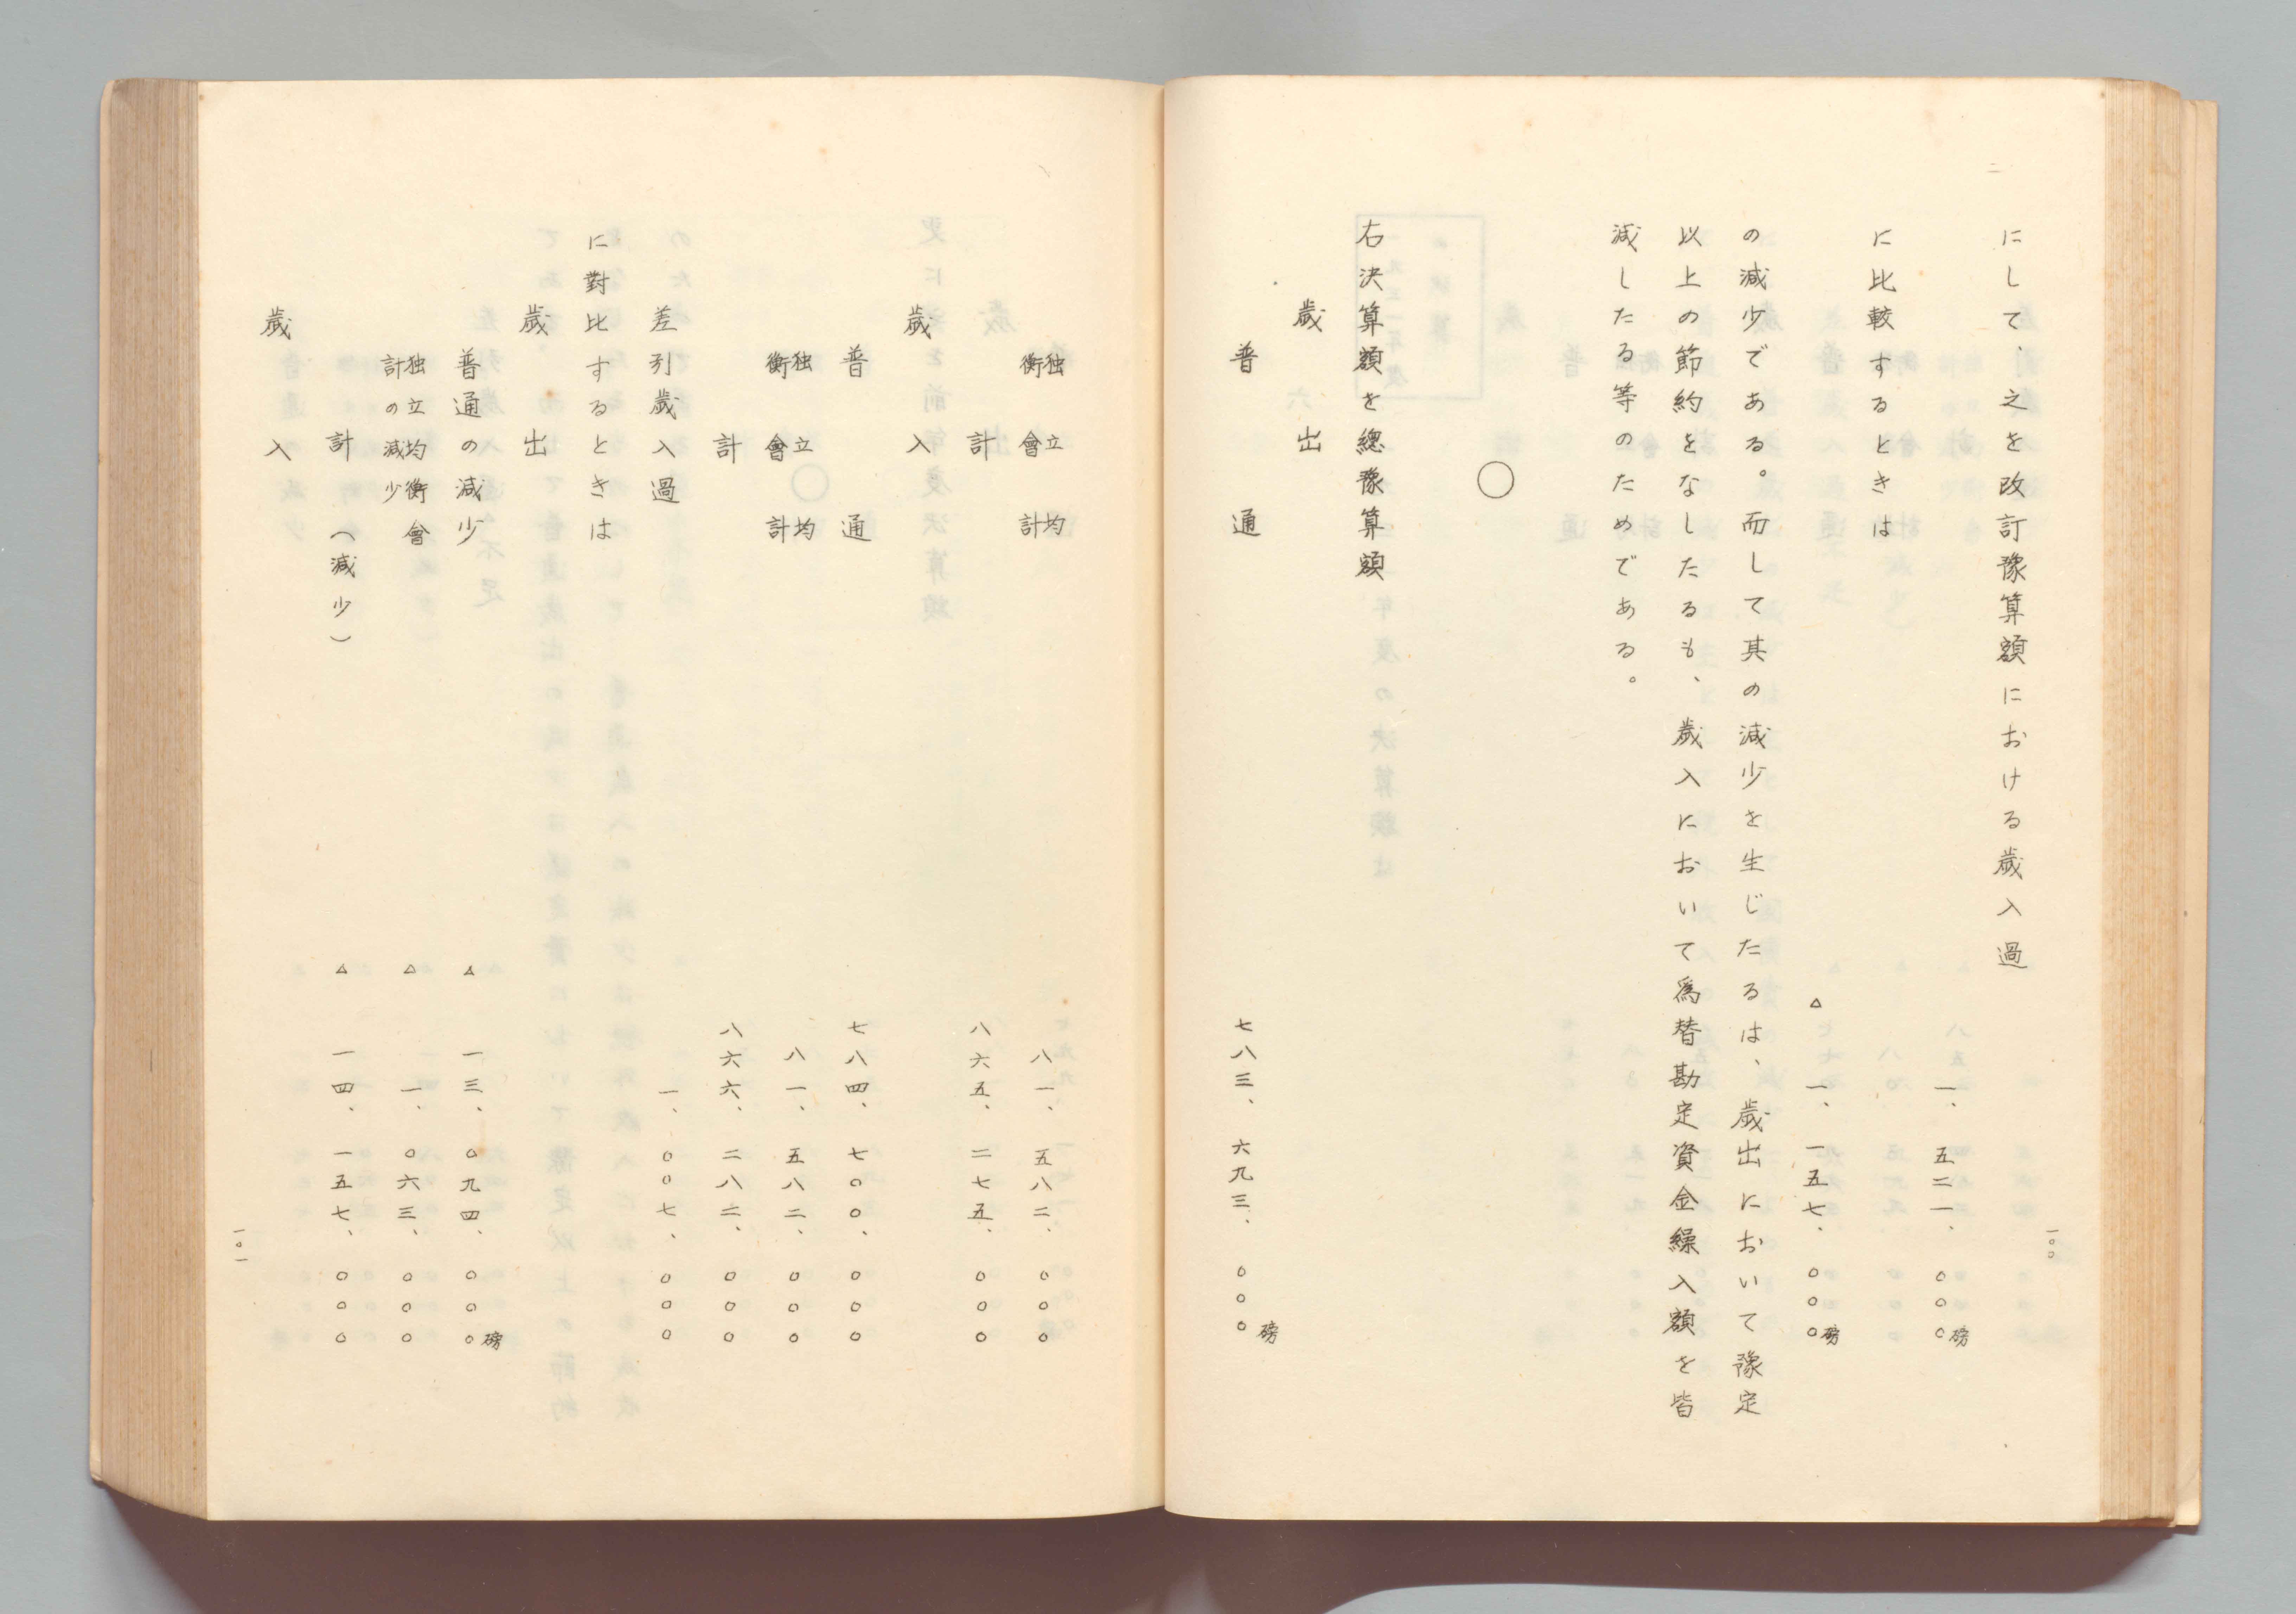 にして、之を改訂豫算額における歲入過
一、五二一、〇〇〇磅
に比較するときは
△ 一、一五七、〇〇〇磅
の減少である。而して其の減少を生じたるは、歲出において豫定
以上の節約をなしたるも、歲入において爲替勘定資金繰入額を皆
減したる等のためである。
〇
右決算額を總豫算額
歲出
普通 七八三、六九三、〇〇〇磅
一〇〇
独立均衡會計 八一、五八二、〇〇〇
計 八六五、二七五、〇〇〇
歲入
普通 七八四、七〇〇、〇〇〇
独立均衡會計 八一、五八二、〇〇〇
計 八六六、二八二、〇〇〇
差引歲入過 一、〇〇七、〇〇〇
に對比するときは
歲出
普通の減少 △ 一三、〇九四、〇〇〇磅
独立均衡會計の減少 △ 一、〇六三、〇〇〇
計（減少） △ 一四、一五七、〇〇〇
歲入
一〇一